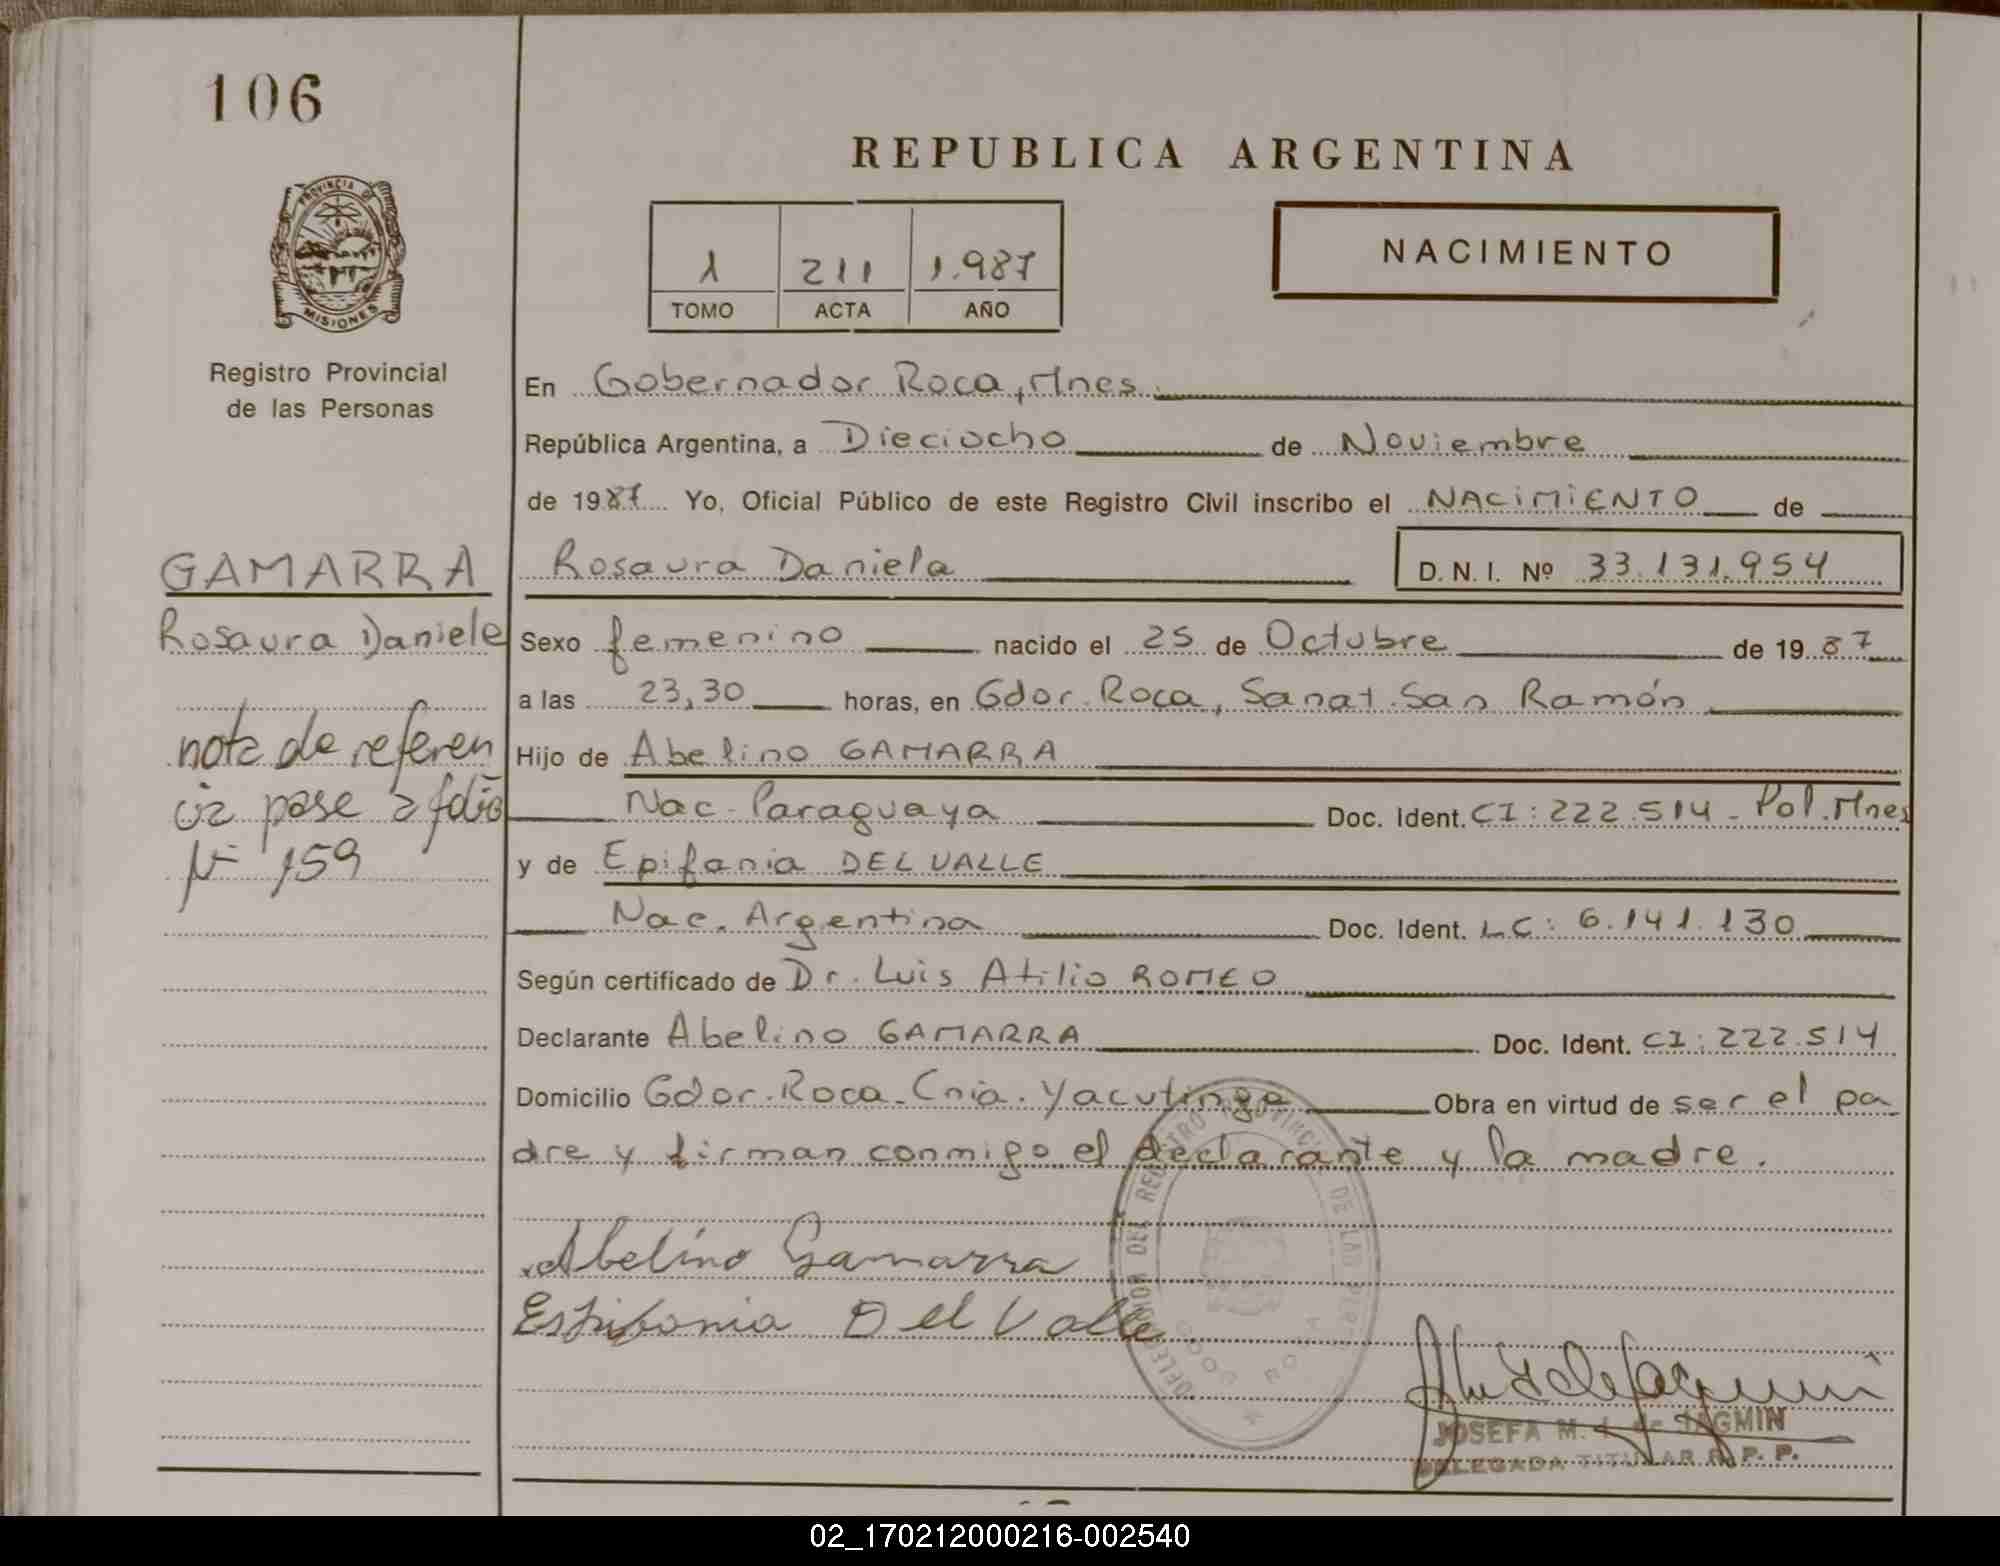 106
PROVINCIA DE
MISIONES
Registro Provincial
de las Personas
GAMARRA
Rosaura Daniela
nota de referen
cia pase a folio
Nº 159
REPUBLICA ARGENTINA
1 211 1.987
TOMO ACTA AÑO
NACIMIENTO
En Gobernador Roca, Mnes.
República Argentina, a Dieciocho de Noviembre
de 1987 Yo, Oficial Público de este Registro Civil inscribo el NACIMIENTO de
Rosaura Daniela D.N.I. Nº 33.131.954
Sexo femenino nacido el 25 de Octubre de 1987
a las 23,30 horas, en Gdor. Roca, Sanat. San Ramón
Hijo de Abelino GAMARRA
Nac. Paraguaya Doc. Ident. CI: 222.514 - Pol. Mnes
y de Epifania DEL VALLE
Nac. Argentina Doc. Ident. LC: 6.141.130
Según certificado de Dr. Luis Atilio ROMEO
Declarante Abelino GAMARRA Doc. Ident. CI: 222.514
Domicilio Gdor. Roca - Cnia. Yacutinga Obra en virtud de ser el pa
dre y firman conmigo el declarante y la madre.
Abelino Gamarra
Espifania Del Valle
DEL REGISTRO PROVINCIAL DE LAS
ROCA
JOSEFA M. de JAGMIN
DELEGADA TITULAR R. P. P.
02_170212000216-002540